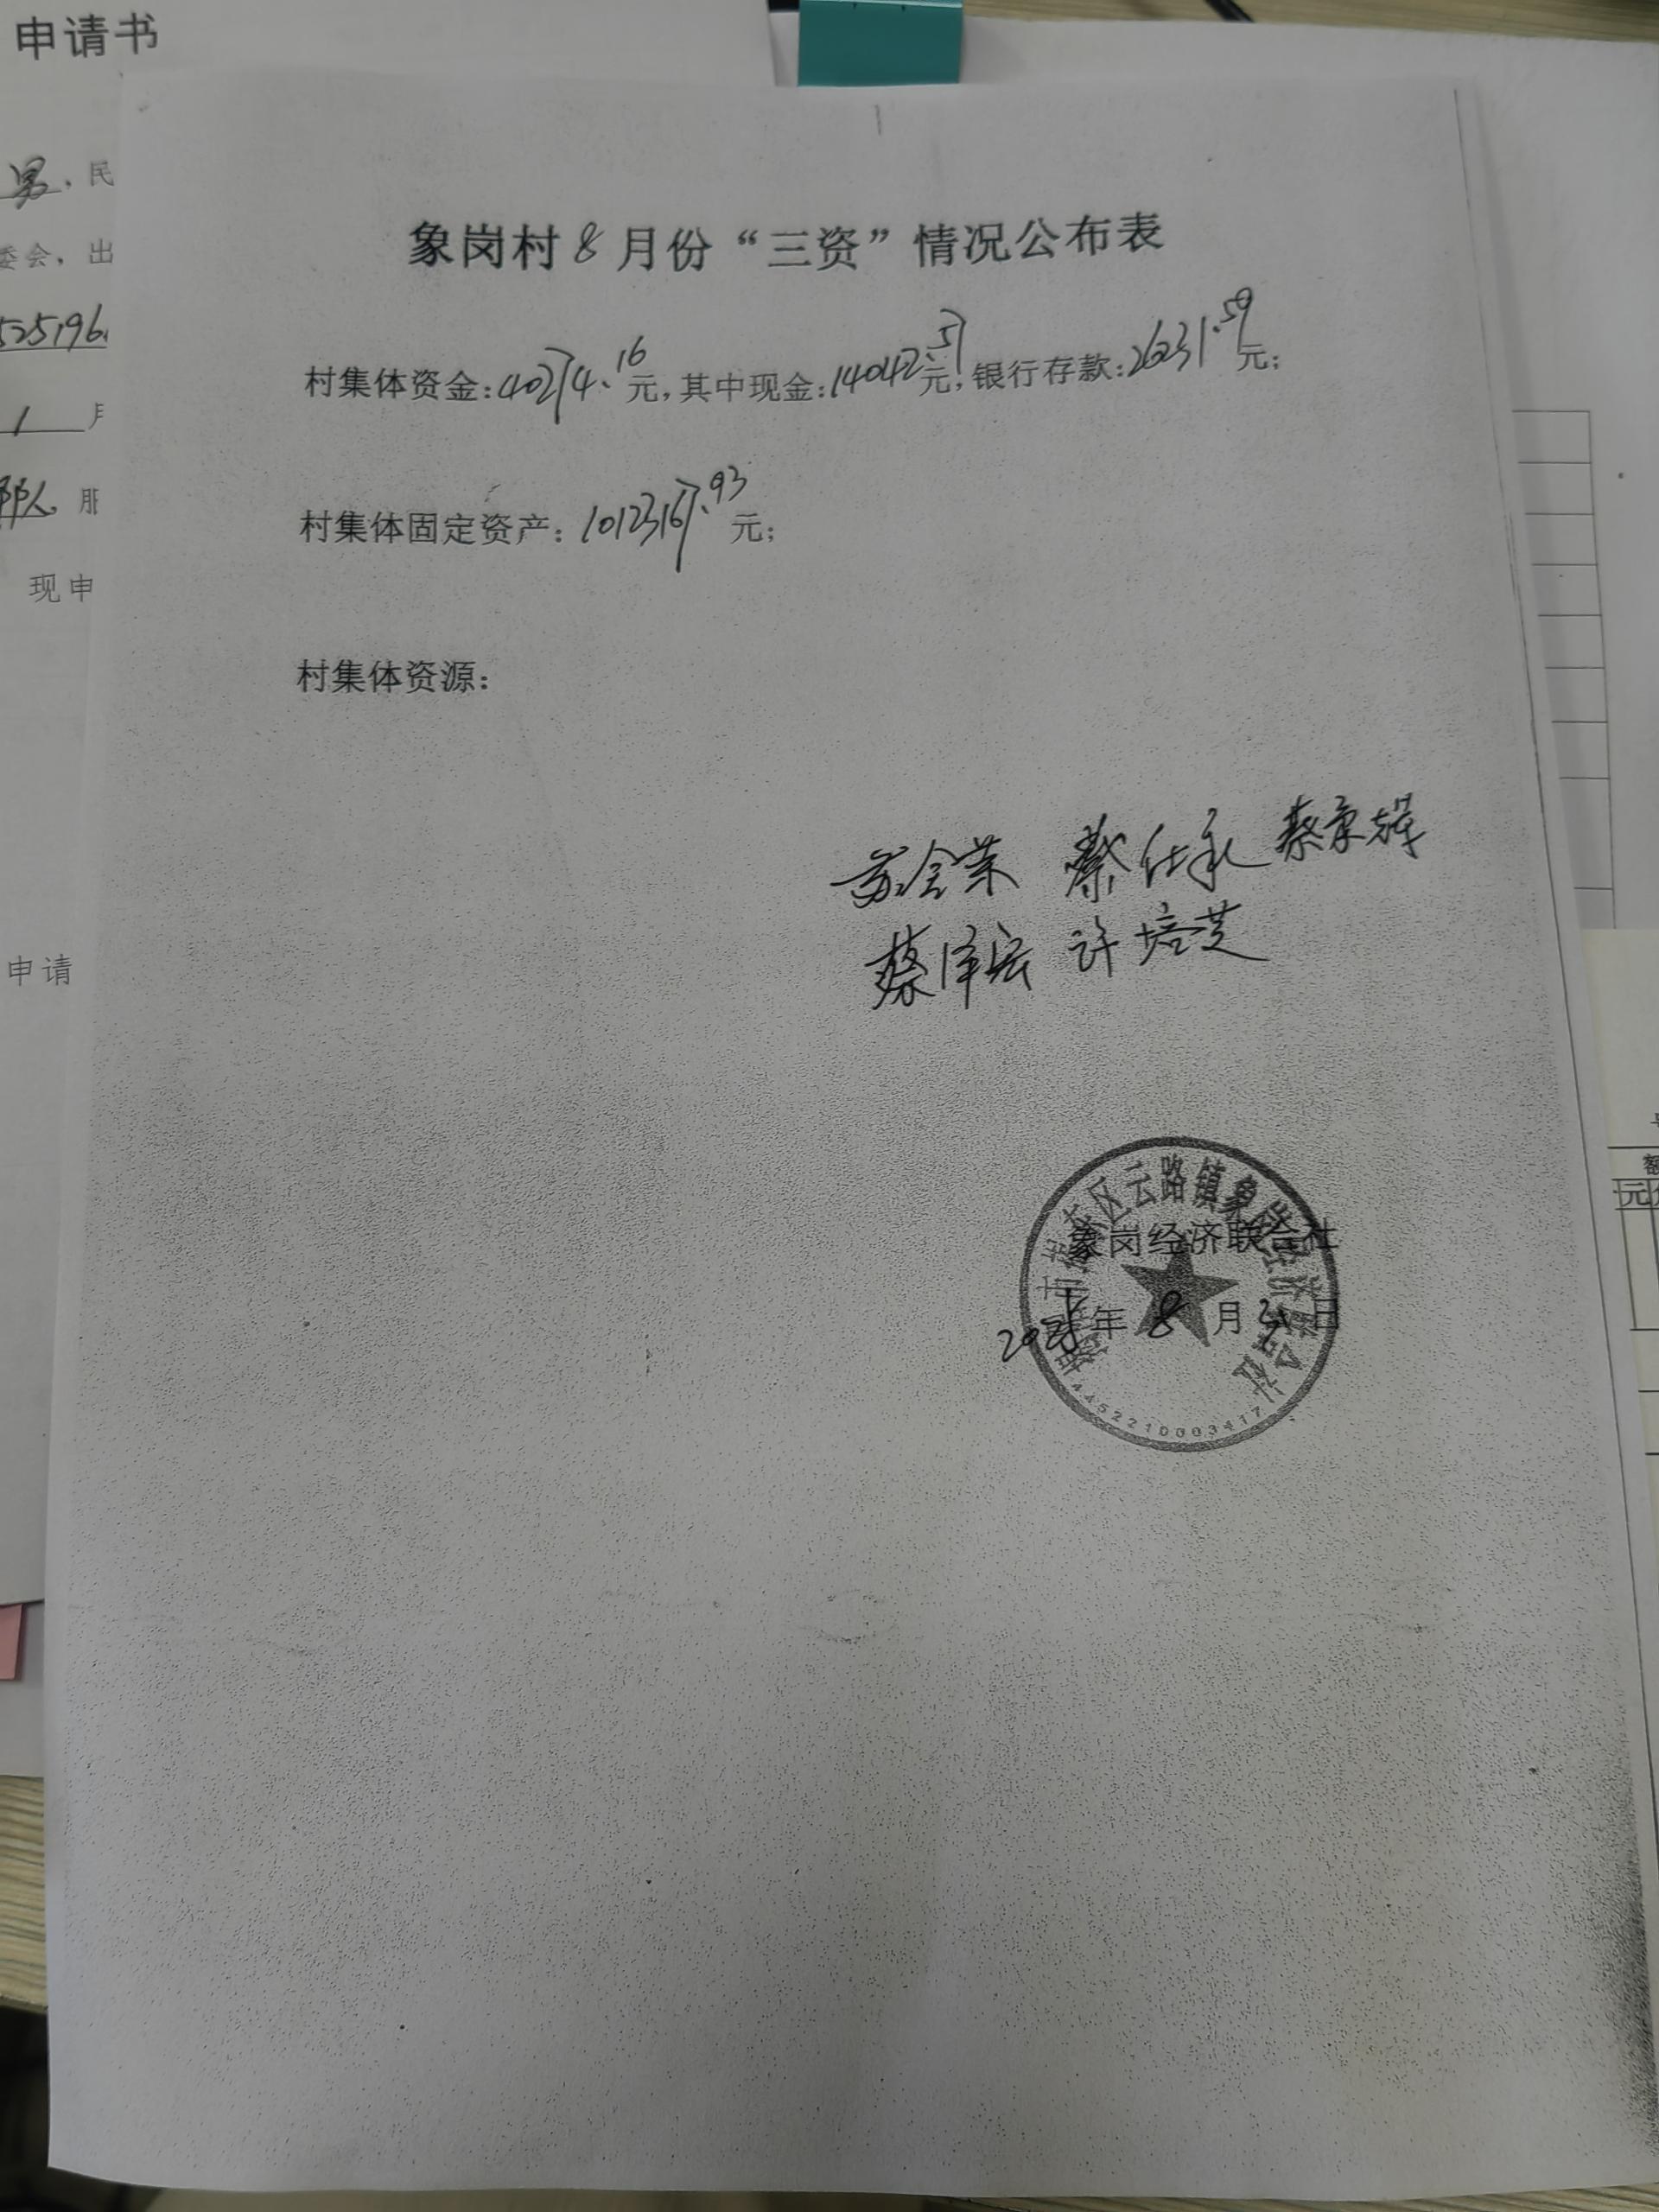 申请书
男，民
委会，出
525196
1 月
现申
申请
象岗村8月份“三资”情况公布表
村集体资金：40274.16元，其中现金：14042.57元，银行存款：26231.59元；
村集体固定资产：1012367.93元；
村集体资源：
蔡仕承
蔡泽宏 许培芝
区云路镇象岗经济联合社
象岗经济联合社
年8月31日
4452210003417
额
元